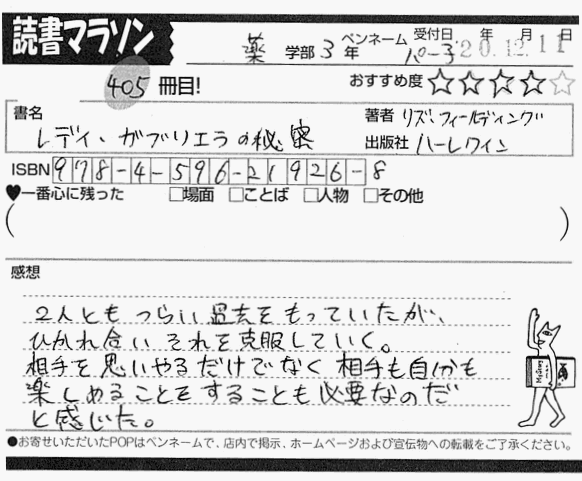 読書マラソン
薬 学部 3 年 ペンネーム パー子 受付日 '20 年 12 月 11 日
405 冊目!
おすすめ度 ☆☆☆☆☆
書名 レディ・ガブリエラの秘密
著者 リズ・フィールディング
出版社 ハーレクイン
ISBN 978-4-596-21926-8
♥一番心に残った □場面 □ことば □人物 □その他
( )
感想
2人ともつらい過去をもっていたが、
ひかれ合いそれを克服していく。
相手を思いやるだけでなく相手も自分も
楽しめることをすることも必要なのだ
と感じた。
●お寄せいただいたPOPはペンネームで、店内で掲示、ホームページおよび宣伝物への転載をご了承ください。